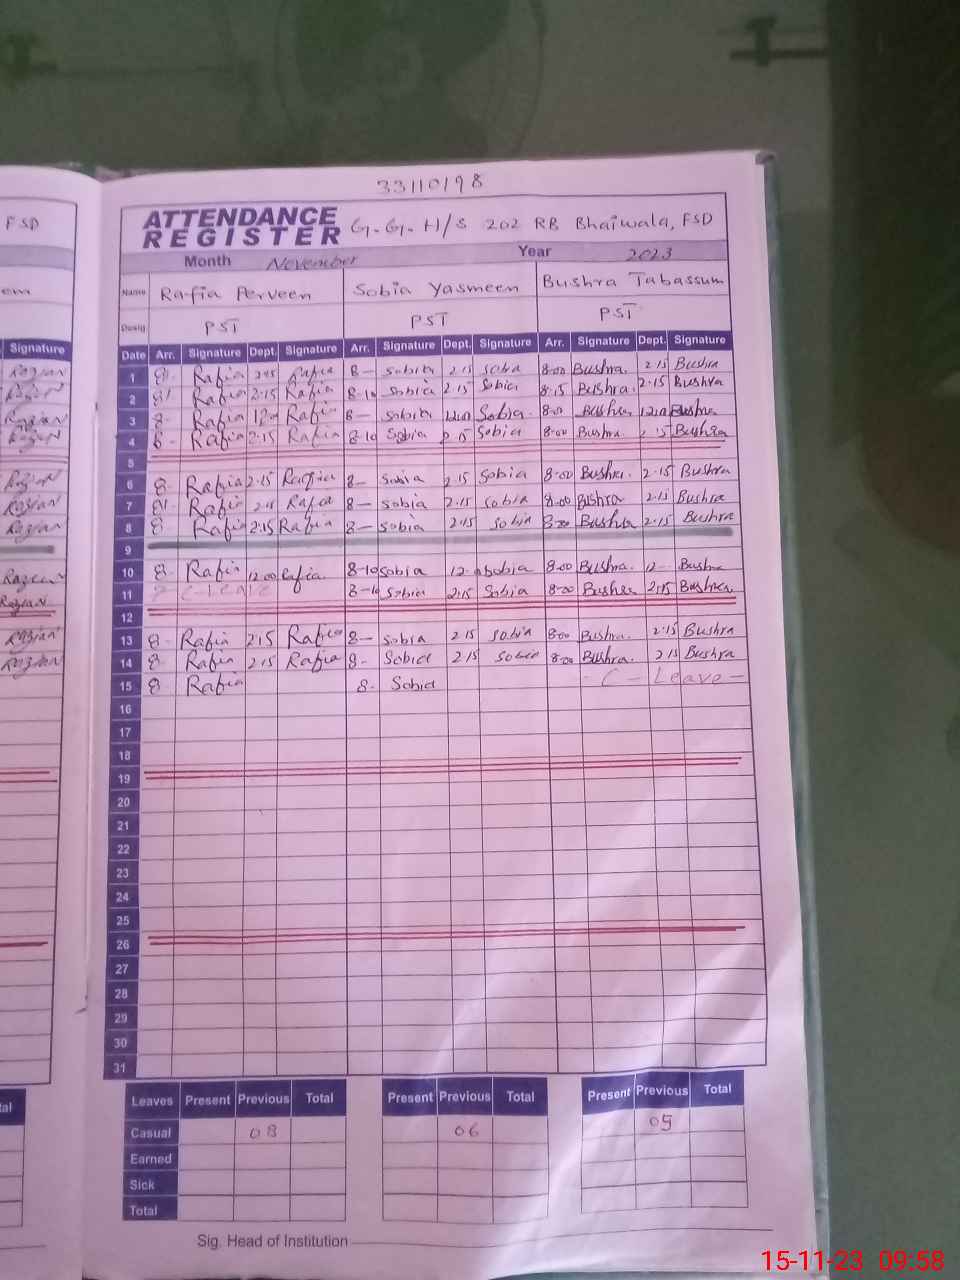 33110198
FSD
ATTENDANCE
REGISTER
G.G. H/S 202 RB Bhaiwala, FSD
Month November Year 2023
Name Rafia Perveen Sobia Yasmeen Bushra Tabassum
Desig PST PST PST
Signature Date Arr. Signature Dept. Signature Arr. Signature Dept. Signature Arr. Signature Dept. Signature
1 8- Rafia 2.15 Rafia 8- Sobia 2.15 Sobia 8-00 Bushra. 2.15 Bushra
2 Rafia 2.15 Rafia 8-10 Sobia 2.15 Sobia 8.15 Bushra. 2.15 Bushra
3 8- Rafia Rafia 8- Sobia Sobia 8-00 Bushra Bushra
4 8- Rafia 2.15 Rafia 8-10 Sobia 2.15 Sobia 8-00 Bushra. 2.15 Bushra
5
6 8- Rafia 2.15 Rafia 8- Sobia 2.15 Sobia 8-00 Bushra. 2.15 Bushra
7 Rafia 2.15 Rafia 8- Sobia 2.15 Sobia 8-00 Bushra 2.15 Bushra
8 8- Rafia 2.15 Rafia 8- Sobia 2.15 Sobia 8-00 Bushra 2.15 Bushra
9
10 8- Rafia 12.00 Rafia 8-10 Sobia Sobia 8-00 Bushra. 12- Bushra
11 C-Leave 8-10 Sobia 2.15 Sobia 8-00 Bushra 2.15 Bushra
12
13 8- Rafia 2.15 Rafia 8- Sobia 2.15 Sobia 8-00 Bushra. 2.15 Bushra
14 8- Rafia 2.15 Rafia 8- Sobia 2.15 Sobia 8-00 Bushra. 2.15 Bushra
15 8- Rafia 8- Sobia - C - Leave -
16
17
18
19
20
21
22
23
24
25
26
27
28
29
30
31
Leaves Present Previous Total Present Previous Total Present Previous Total
Casual 08 06 05
Earned
Sick
Total
Sig. Head of Institution
15-11-23 09:58